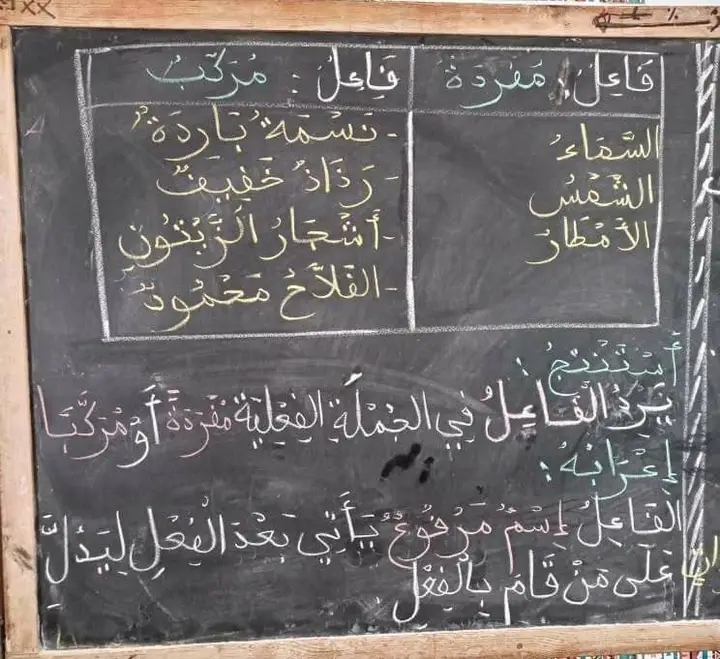 فَاعِلٌ: مُفْرَدَةٌ
السَّمَاءُ
الشَّمْسُ
الأَمْطَارُ
فَاعِلٌ: مُرَكَّبٌ
- نَسْمَةٌ بَارِدَةٌ
- رَذَاذٌ خَفِيفٌ
- أَشْجَارُ الزَّيْتُونِ
- الفَلاَّحُ مَحْمُودٌ
أَسْتَنْتِجُ:
يَرِدُ الْفَاعِلُ فِي الجُمْلَةِ الفِعْلِيَّةِ مُفْرَدَةً أَوْ مُرَكَّبًا
إِعْرَابُهُ:
الفَاعِلُ إِسْمٌ مَرْفُوعٌ يَأْتِي بَعْدَ الْفِعْلِ لِيَدُلَّ
عَلَى مَنْ قَامَ بِالْفِعْلِ